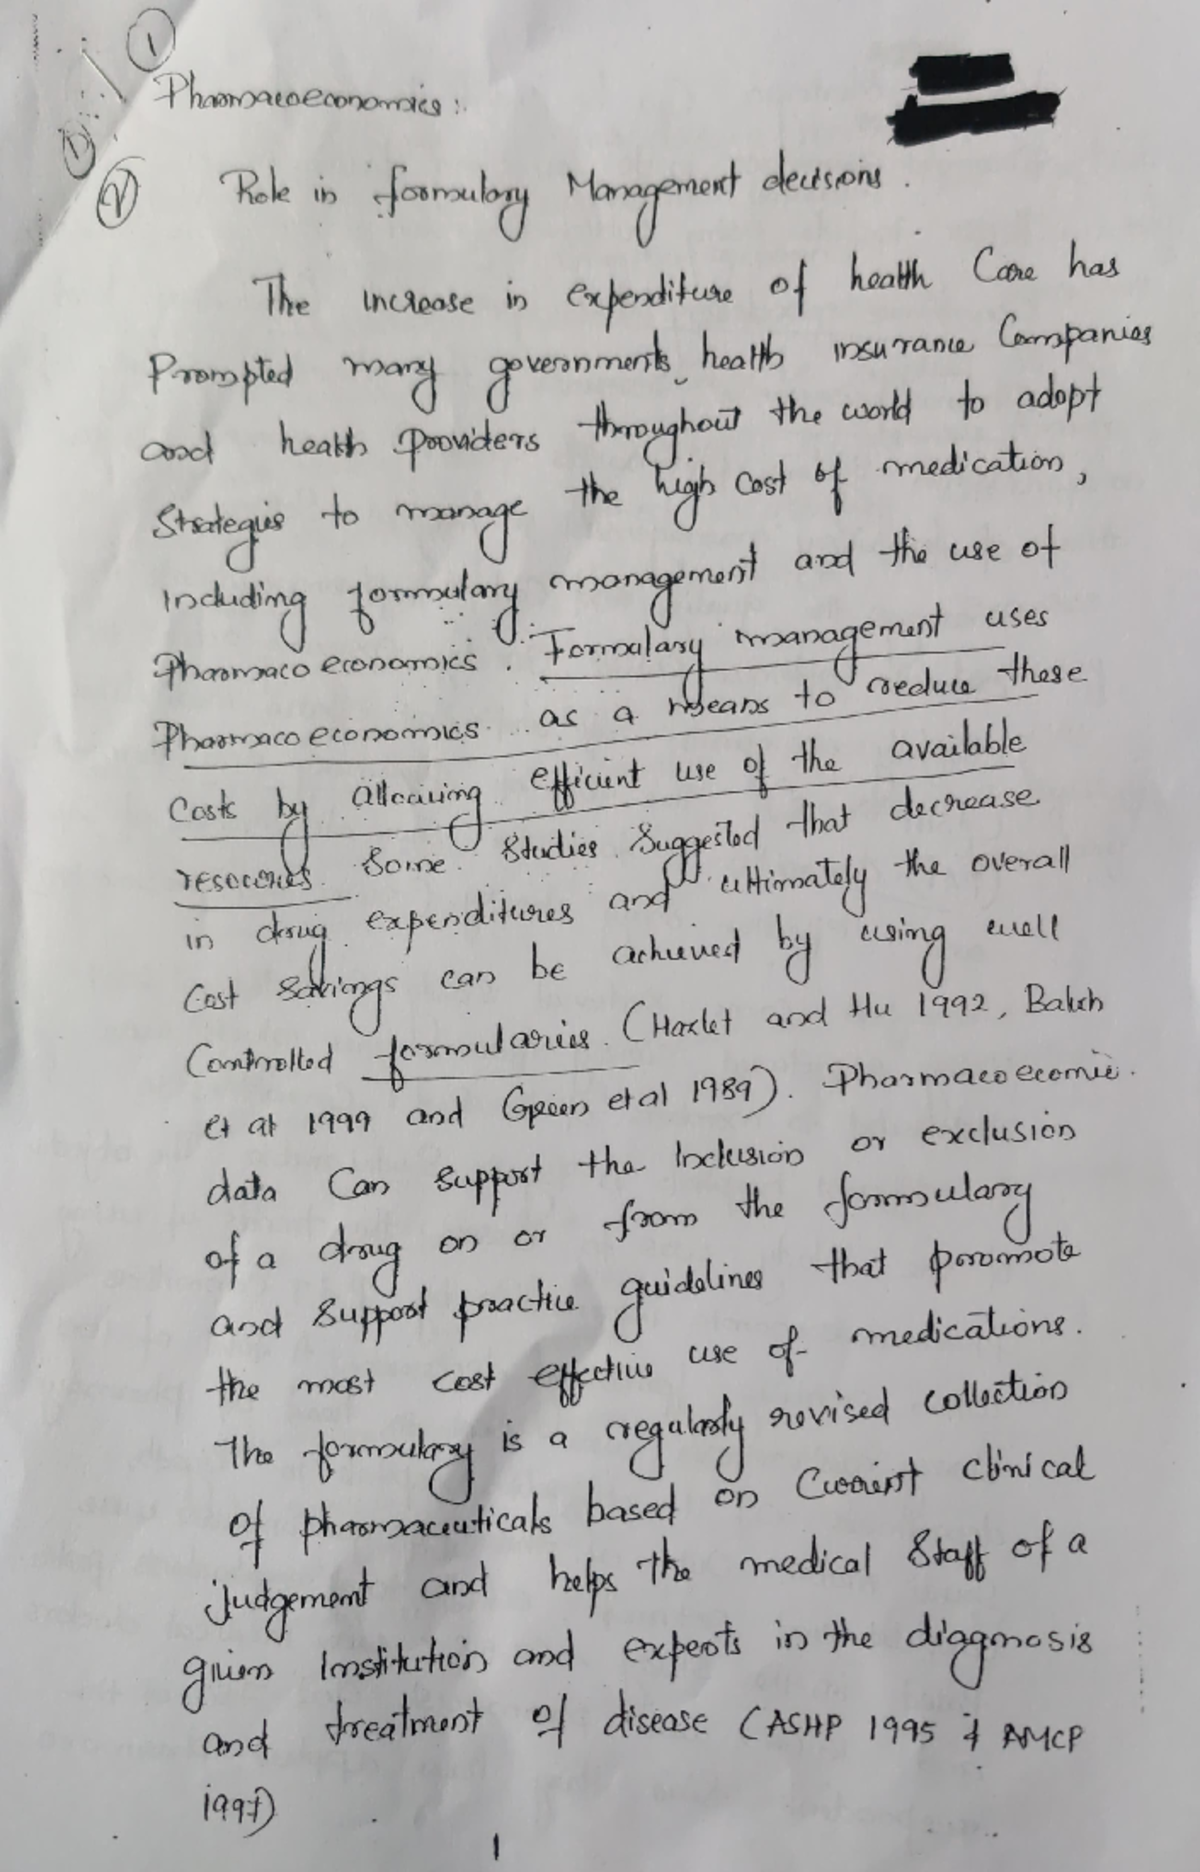 1
Pharmacoeconomics:
V Role in formulary Management decisions.
The increase in expenditure of health Care has
Prompted many governments, health insurance Companies
and health providers throughout the world to adopt
Strategies to manage the high cost of medication,
Including formulary management and the use of
Pharmaco economics. Formulary management uses
Pharmaco economics as a means to reduce these
Costs by allowing efficient use of the available
resources. Some Studies Suggested that decrease
in drug expenditures and ultimately the overall
Cost savings can be achieved by using well
Controlled formularies. (Haxlet and Hu 1992, Baksh
et al 1999 and Green et al 1989). Pharmacoecomic
data Can support the Inclusion or exclusion
of a drug on or from the formulary
and support practice guidelines that promote
the most cost effective use of medications.
The formulary is a regularly revised collection
of pharmaceuticals based on Current clinical
judgement and helps the medical Staff of a
given Institution and experts in the diagnosis
and treatment of disease (ASHP 1995 & AMCP
1997)
1